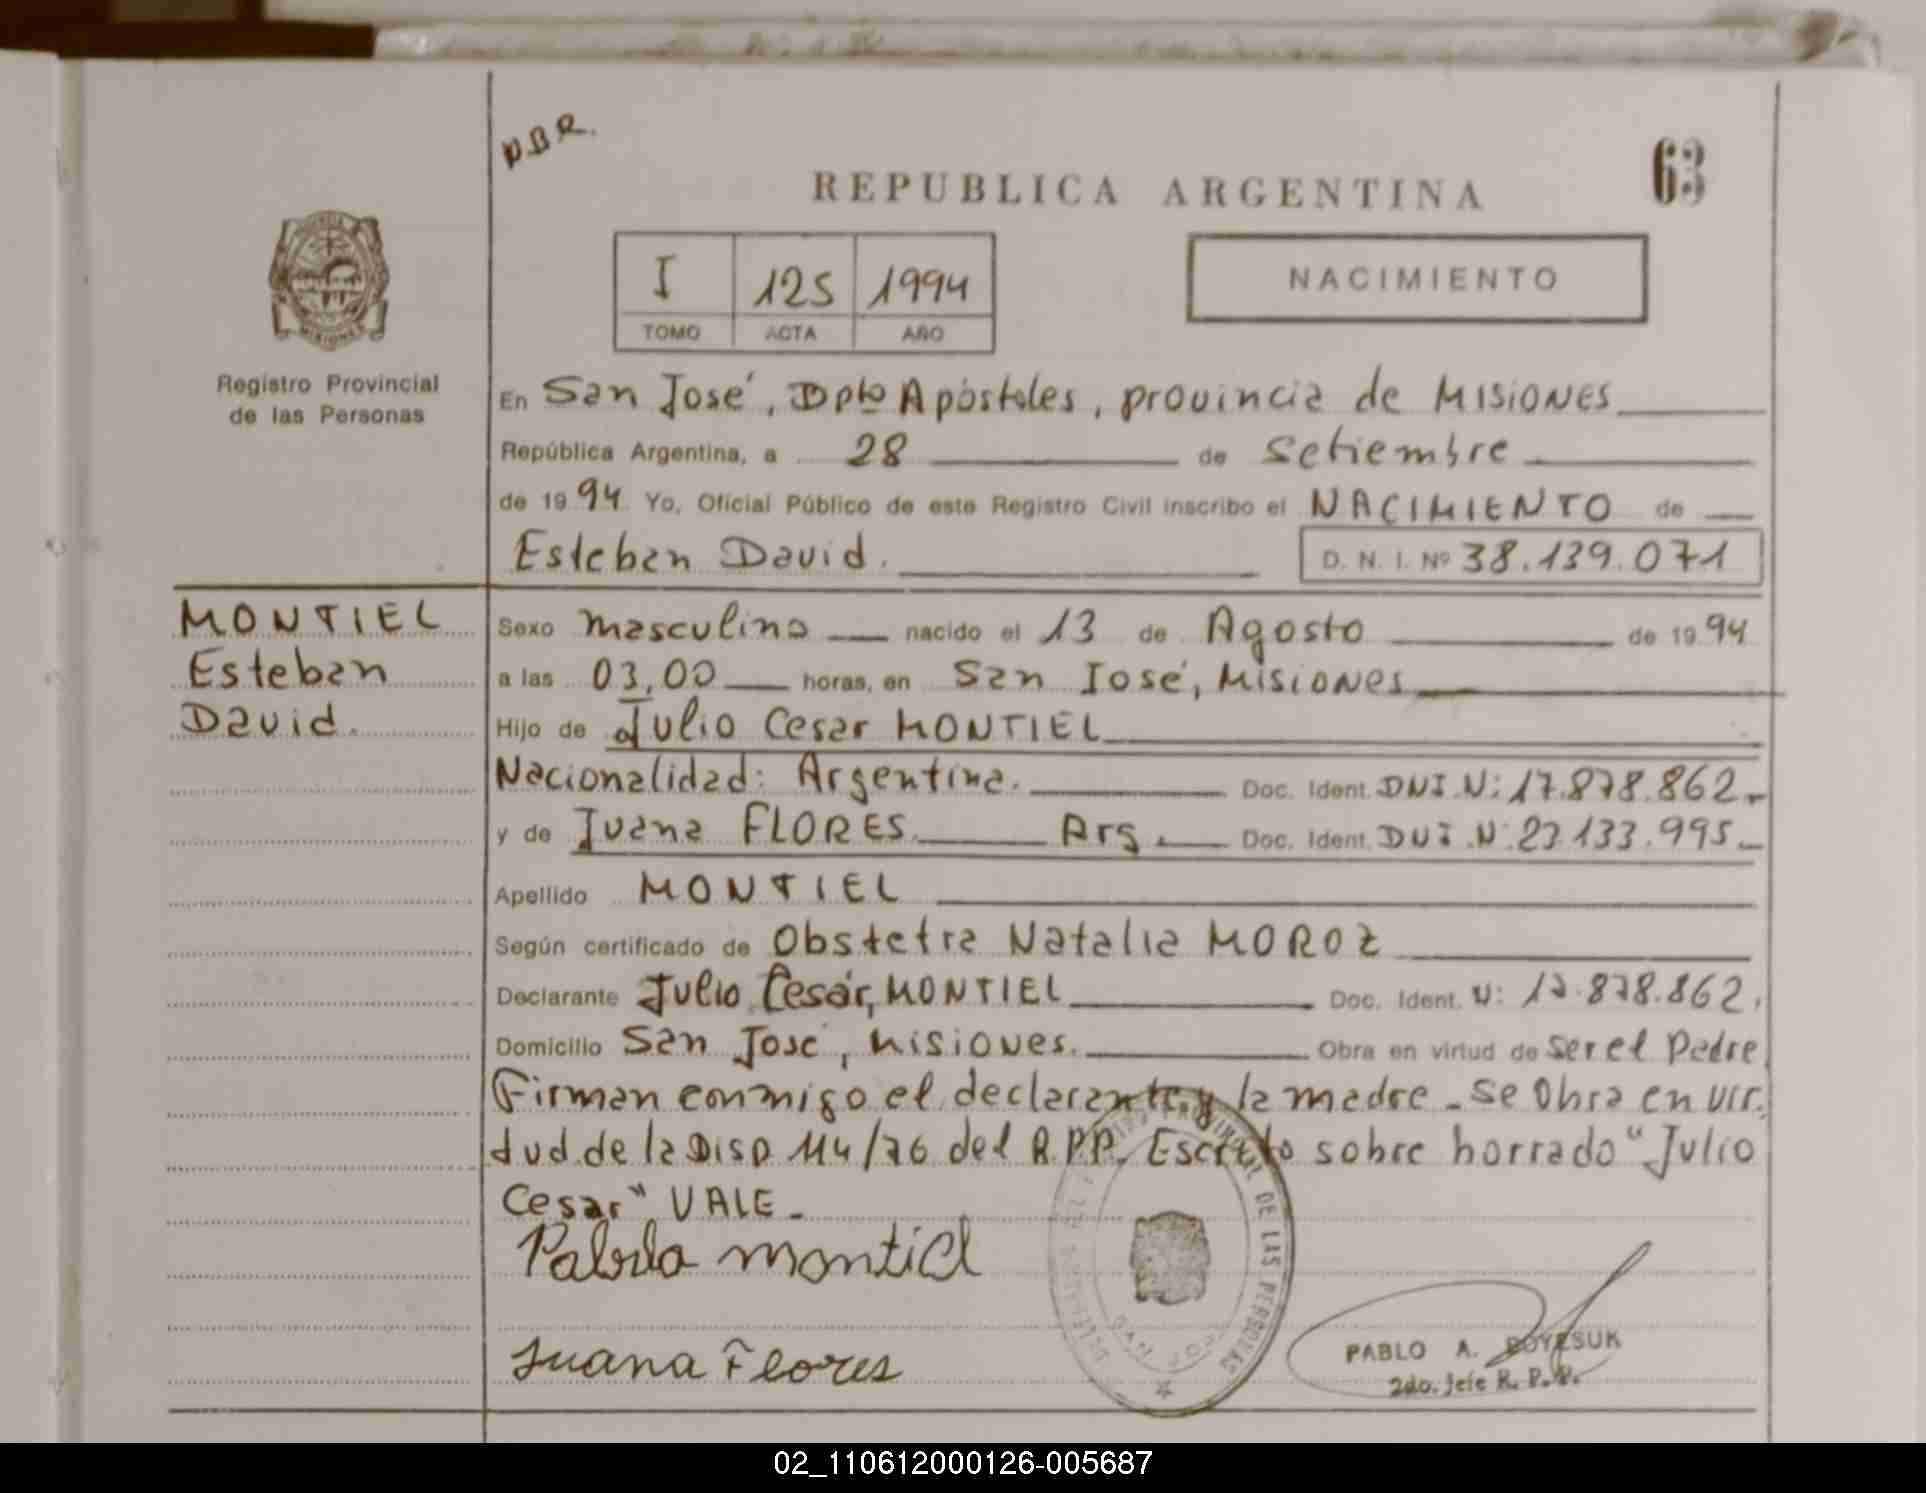 N.B.R.
63
REPUBLICA ARGENTINA
I 125 1994
TOMO ACTA AÑO
NACIMIENTO
MISIONES
Registro Provincial
de las Personas
En San José, Dpto Apóstoles, provincia de MISIONES
República Argentina, a 28 de Setiembre
de 1994 Yo, Oficial Público de este Registro Civil inscribo el NACIMIENTO de
Esteban David. D. N. I. Nº 38.139.071
MONTIEL
Esteban
David.
Sexo masculino nacido el 13 de Agosto de 1994
a las 03,00 horas, en San José, Misiones
Hijo de Julio Cesar MONTIEL
Nacionalidad: Argentina. Doc. Ident. DNI.N: 17.878.862.-
y de Juana FLORES. Arg. Doc. Ident. DNI.N: 23.133.995.-
Apellido MONTIEL
Según certificado de Obstetra Natalia MOROZ
Declarante Julio Cesár, MONTIEL Doc. Ident. N: 17.878.862.
Domicilio San José, Misiones. Obra en virtud de ser el Padre
Firman conmigo el declarante y la madre - Se Obra en vir.
tud de la Disp 114/76 del R.P.P. Escrito sobre borrado "Julio
Cesar" VALE -
montiel
Juana Flores
PROVINCIAL DE LAS PERSONAS
SAN JOSE
PABLO A. BOYESUK
2do. Jefe R. P. P.
02_110612000126-005687